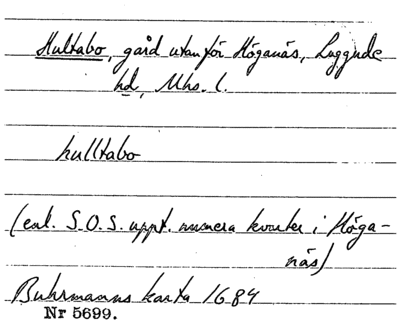 Hultabo, gård utanför Höganäs, Luggude
hd, Mhs. l.
hulltabo
(enl. S.O.S. uppt. numera kvarter i Höga-
näs)
Buhrmanns karta 1684
Nr 5699.